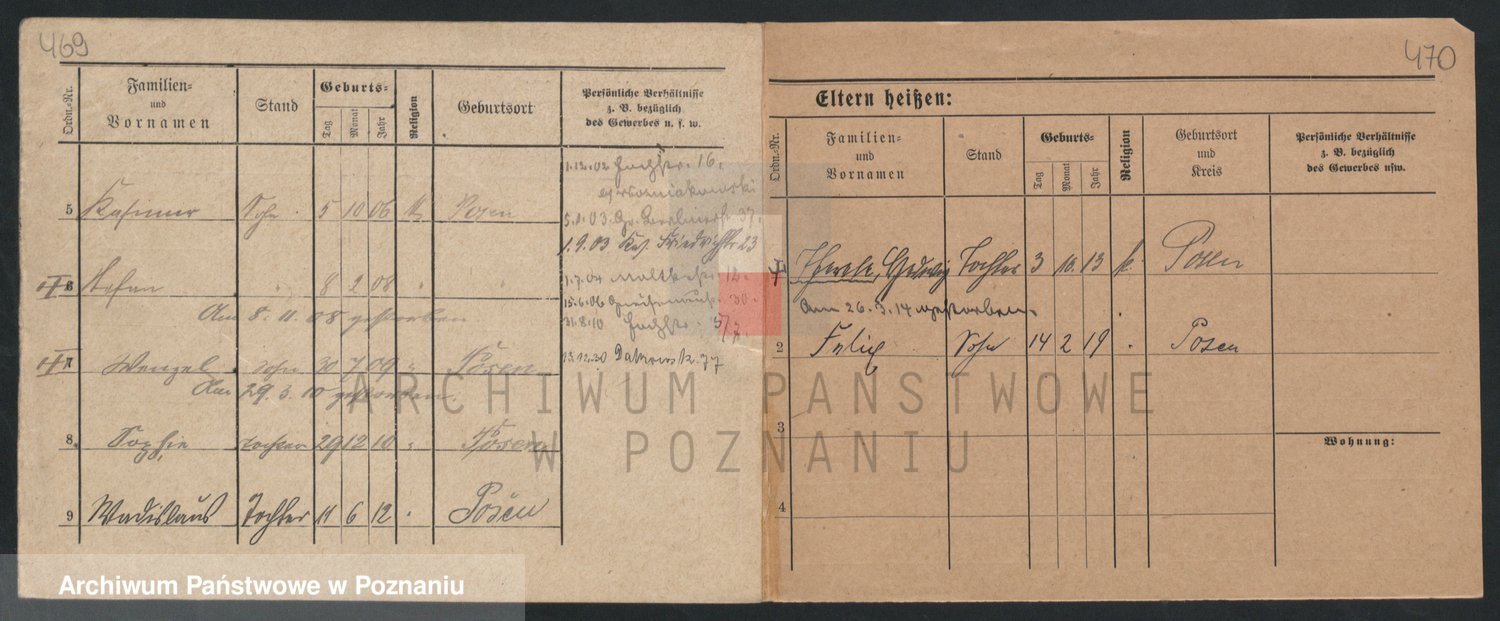 469
Ordn.-Nr.
Familien-
und
Vornamen
Stand
Geburts-
Tag
Monat
Jahr
Religion
Geburtsort
Persönliche Verhältnisse
z. B. bezüglich
des Gewerbes u. s. w.
1.12.02 16.
5.1.03. Gr. Berlinerstr. 37.
1.9.03 Friedrichstr. 23
5 Kasimir Sohn 5 10 06 k. Posen
6 Stefan 8 2 08
Am 8. 11. 08 gestorben.
15.6.06 30.
31.8.10
7 Wenzel Sohn 30 7 09 Posen
Am 29. 3. 10 gestorben.
13.12.20 77
8. Sophie Tochter 29 12 10 Posen
9 Wadislaus Tochter 11 6 12 Posen
470
Eltern heißen:
Ordn.-Nr.
Familien-
und
Vornamen
Stand
Geburts-
Tag
Monat
Jahr
Religion
Geburtsort
und
Kreis
Persönliche Verhältnisse
z. B. bezüglich
des Gewerbes usw.
Hedwig Tochter 3 10. 13 k. Posen
Am 26. 3. 14 gestorben.
2 Felix Sohn 14 2 19 Posen
3
Wohnung:
4
ARCHIWUM PAŃSTWOWE
W POZNANIU
Archiwum Państwowe w Poznaniu